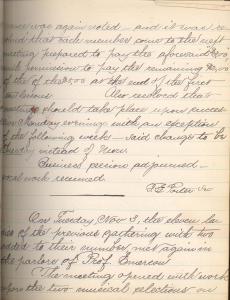 once was again voted — and it was re
that each member come to the next
meeting prepared to pay the aforesaid
with permission to pay the remaining
of the $2.50 at the end of the first
Also resolved that
meeting should take place upon
Monday evening with an exception
of the following week — said change to be
Tuesday instead of Mon.
Business session adjourned —
work resumed.
Sec
On Tuesday, Nov 3, the eleven la
ies of the previous gathering with two
added to their number met again in
the parlors of Prof. Emerson
The meeting opened with work
upon the two musical selections on